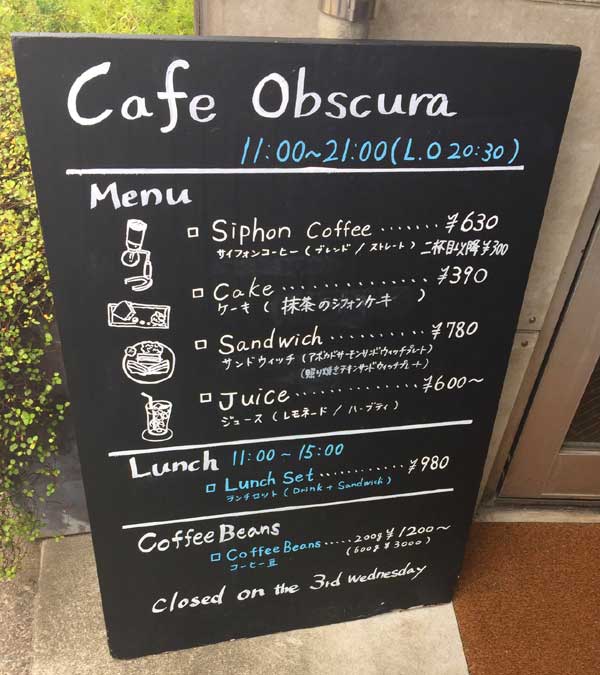 Cafe Obscura
11:00~21:00(L.O 20:30)
Menu
□ Siphon Coffee ....... ¥630
サイフォンコーヒー ( ブレンド / ストレート ) 二杯目以降¥300
□ Cake ................ ¥390
ケーキ ( 抹茶のシフォンケーキ )
□ Sandwich ............ ¥780
サンドウィッチ (アボカドサーモンサンドウィッチプレート)
(照り焼きチキンサンドウィッチプレート)
□ Juice .............. ¥600~
ジュース ( レモネード / ハーブティ )
Lunch 11:00~15:00
□ Lunch Set ........... ¥980
ランチセット ( Drink + Sandwich )
Coffee Beans
□ Coffee Beans ..... 200g ¥1200~
コーヒー豆 (600g ¥3000)
closed on the 3rd Wednesday